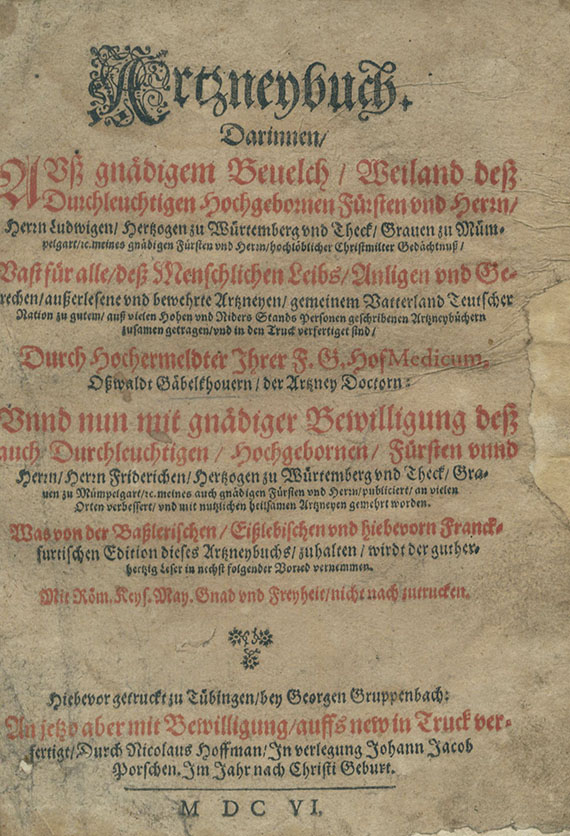 Artzneybuch.
Darinnen/
AVß gnädigem Beuelch / Weiland deß
Durchleuchtigen Hochgebornen Fürsten vnd Herrn/
Herrn Ludwigen/ Hertzogen zu Würtemberg vnd Theck/ Grauen zu Müm-
pelgart/ ꝛc. meines gnädigen Fürsten vnd Herrn/ hochlöblicher Christmilter Gedächtnuß/
Vast für alle/ deß Menschlichen Leibs/ Anligen vnd Ge-
rechen/ außerlesene vnd bewehrte Artzneyen/ gemeinem Vatterland Teutscher
Nation zu gutem/ auß vielen Hohen vnd Niders Stands Personen geschribenen Artzneybüchern
zusamen getragen/ vnd in den Truck verfertiget sind/
Durch Hochermeldter Ihrer F. G. HofMedicum,
Oßwaldt Gäbelkhouern/ der Artzney Doctorn:
Vnnd nun mit gnädiger Bewilligung deß
auch Durchleuchtigen / Hochgebornen/ Fürsten vnnd
Herrn/ Herrn Friderichen/ Hertzogen zu Würtemberg vnd Theck/ Gra-
uen zu Mümpelgart/ ꝛc. meines auch gnädigen Fürsten vnd Herrn/ publiciert/ an vielen
Orten verbessert/ vnd mit nutzlichen heilsamen Artzneyen gemehrt worden.
Was von der Baßlerischen / Eißlebischen vnd hiebevorn Franck-
furtischen Edition dieses Artzneybuchs/ zuhalten / wirdt der guther-
hertzig Leser in nechst folgender Vorred vernemmen.
Mit Röm. Keys. May. Gnad vnd Freyheit/ nicht nach zutrucken.
Hiebevor getruckt zu Tübingen/ bey Georgen Gruppenbach:
An jetzo aber mit Bewilligung/ auffs new in Truck ver-
fertigt/ Durch Nicolaus Hoffman/ In verlegung Johann Jacob
Porschen. Im Jahr nach Christi Geburt.
M DC VI.